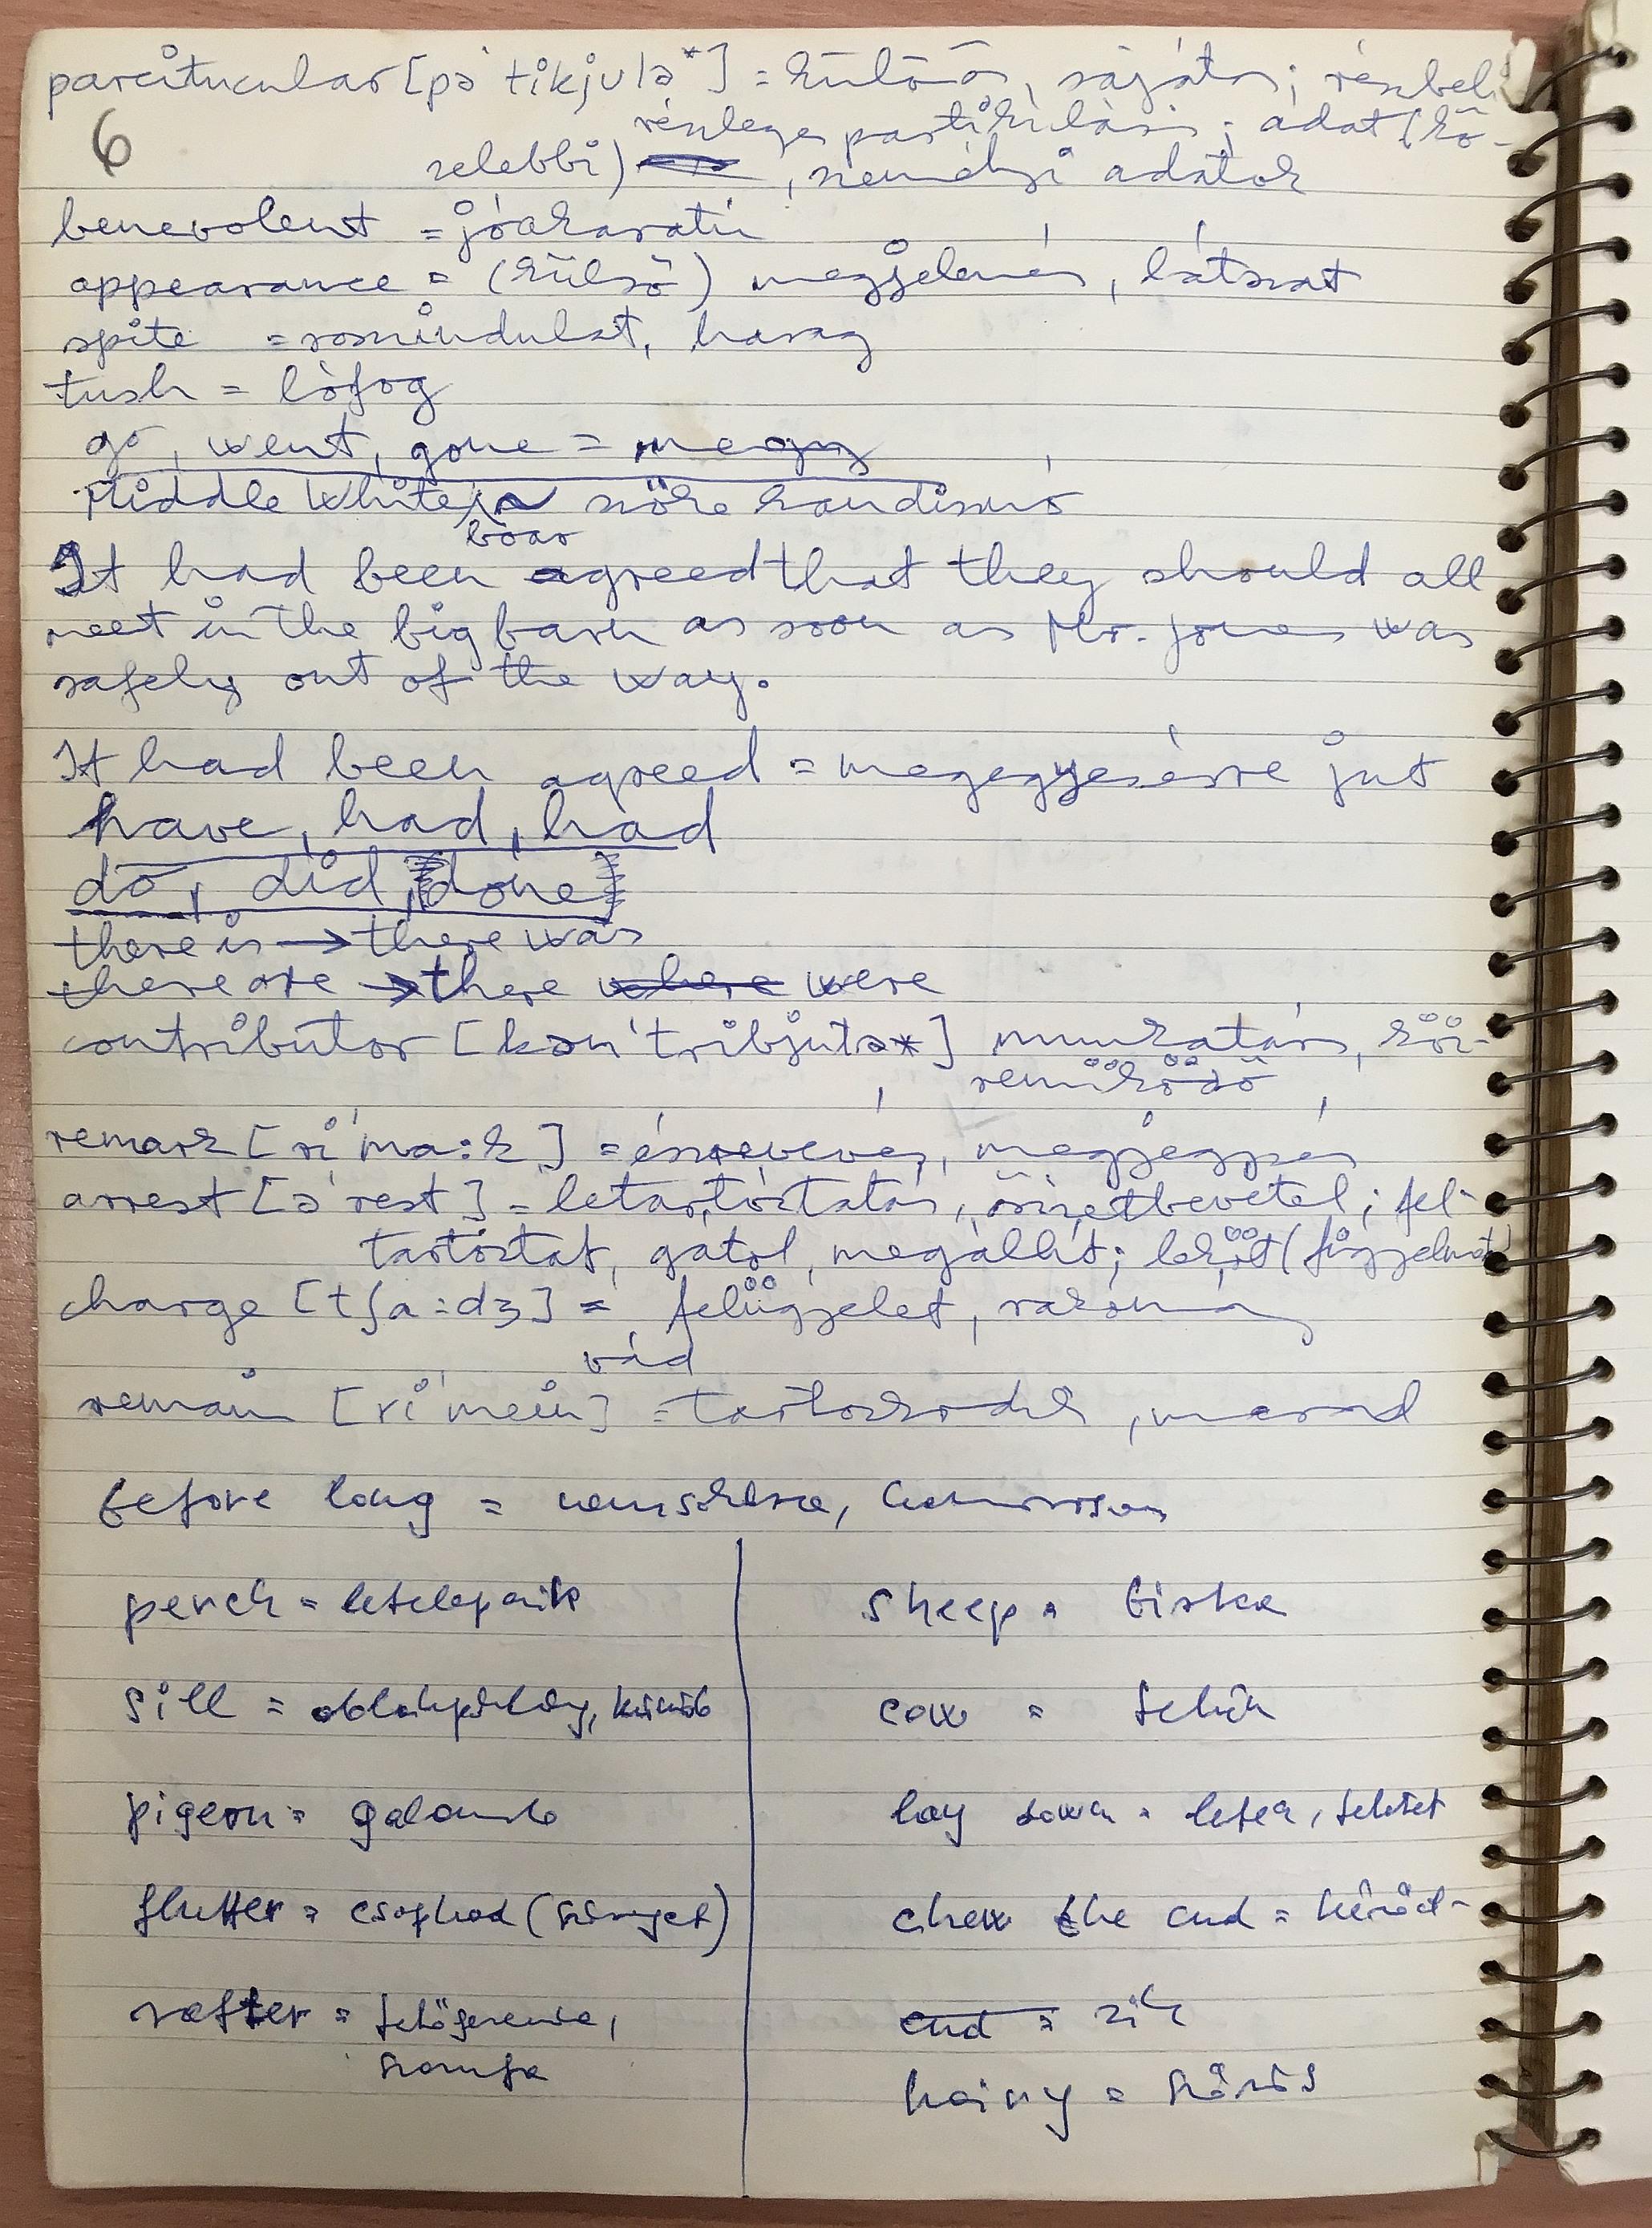 parcitucular [pə'tikjulə*] = különös, sajátos; részbeli
6
részleges partikuláris; adat (kö-
zelebbi), személyi adatok
benevolent = jóakaratú
appearance = (külső) megjelenés, látszat
spite = rosszindulat, harag
tush = lófog
go, went, gone = megy
Middle White szőke kandisznó
boar
It had been agreed that they should all
meet in the big barn as soon as Mr. Jones was
safely out of the way.
It had been agreed = megegyezésre jut
have, had, had
do, did, [done]
there is → there was
there are → there where were
contributor [kən'tribjutə*] munkatárs, köz-
reműködő
remark [ri'ma:k] = észrevevés, megjegyzés
arrest [ə'rest] = letartóztatás, őrizetbevétel; fel-
tartóztat, gátol, megállít; leköt (figyelmet)
charge [tʃa:dʒ] = felügyelet, rakomány
vád
remain [ri'mein] = tartózkodik, marad
before long = nemsokára, hamarosan
perch = letelepszik
sill = ablakpárkány, küszöb
pigeon = galamb
flutter = csapkod (szárnyat)
rafter = tetőgerenda,
szarufa
sheep = birka
cow = tehén
lay down = letesz, fektet
chew the cud = kérőd-
cud = zik
hairy = szőrös